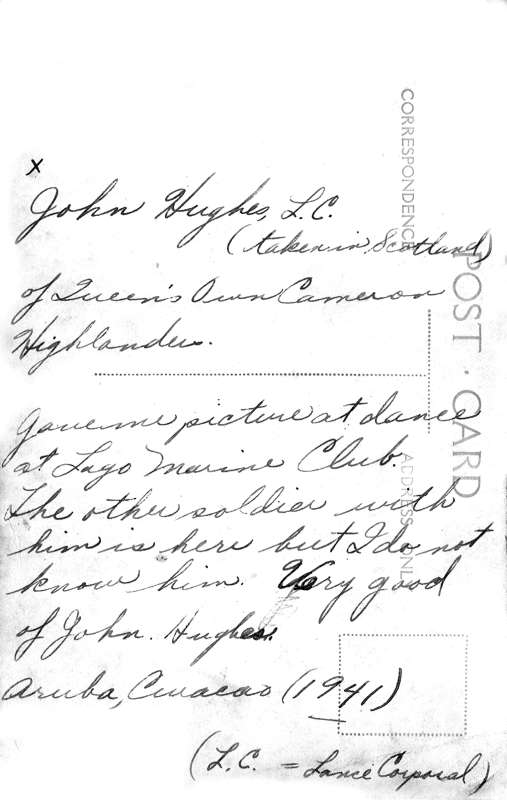 x
John Hughes, L.C.
(taken in Scotland)
of Queen's Own Cameron
Highlanders.
Gave me picture at dance
at Lago Marine Club.
The other soldier with
him is here but I do not
know him. Very good
of John Hughes.
Aruba, Curacao (1941)
(L.C. = Lance Corporal)
POST · CARD
CORRESPONDENCE
ADDRESS ONLY